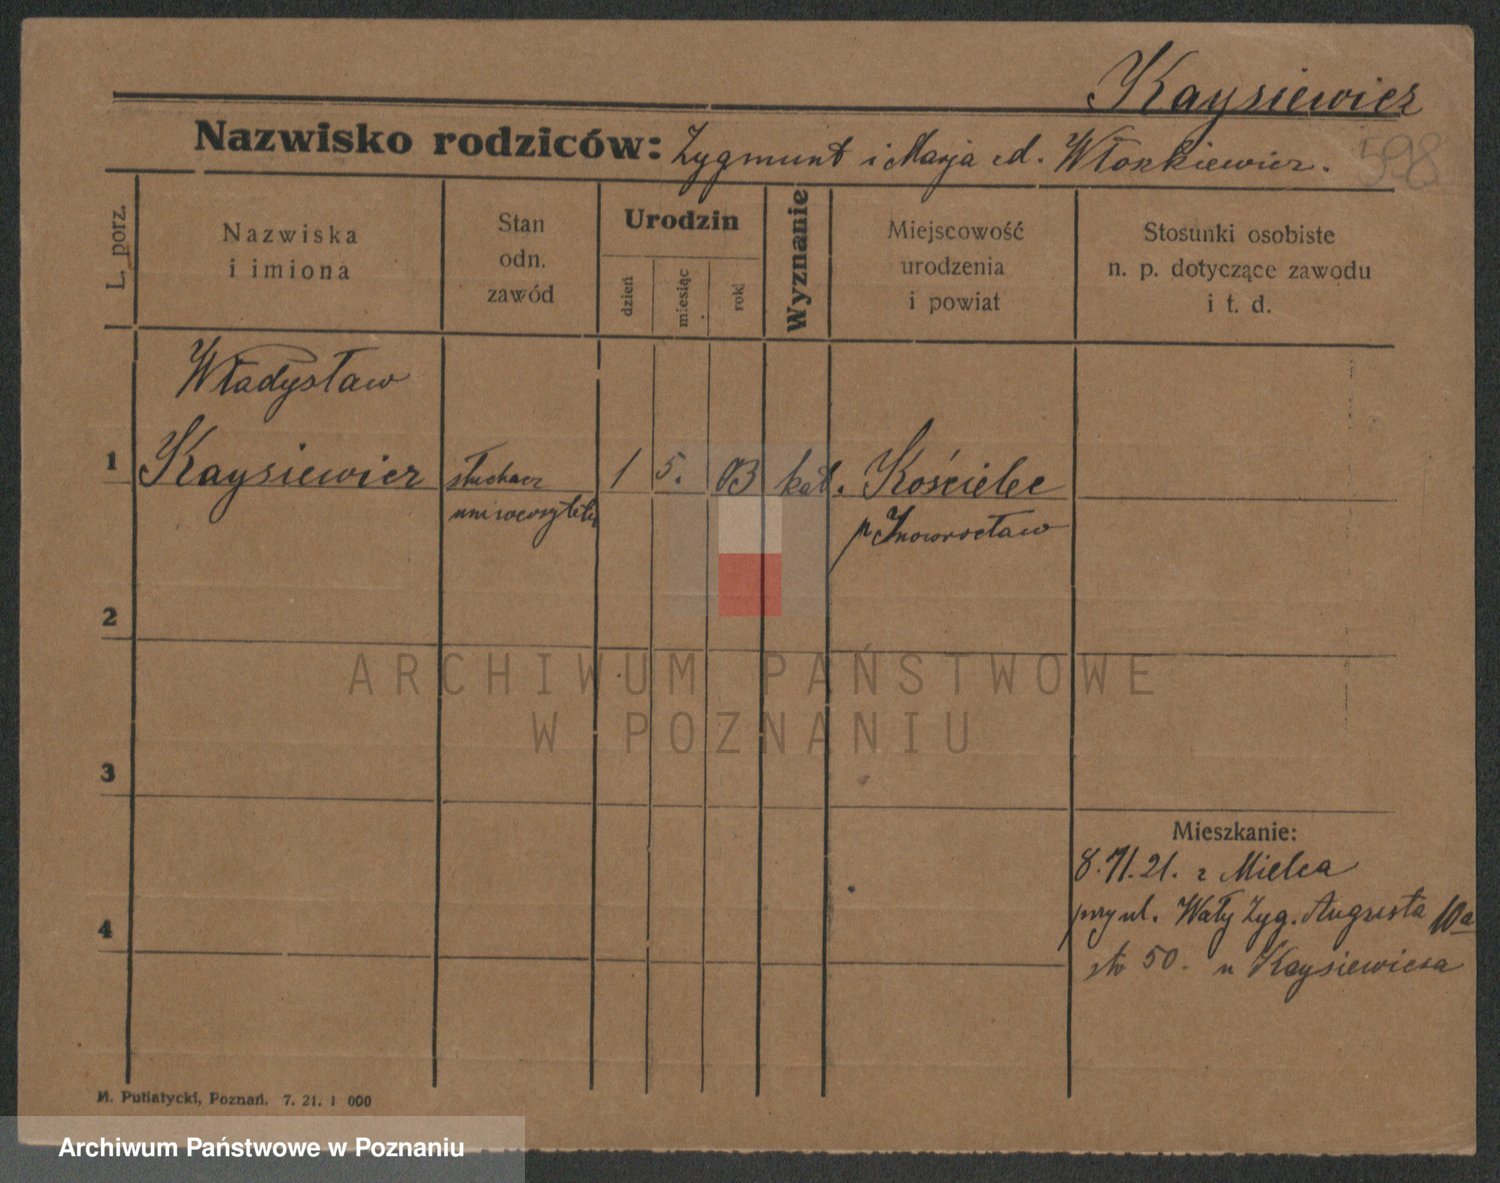 Kaysiewicz
Nazwisko rodziców: Zygmunt i Marja d. Włoszkiewicz.
598
L. porz.
Nazwiska
i imiona
Stan
odn.
zawód
Urodzin
dzień
miesiąc
rok
Wyznanie
Miejscowość
urodzenia
i powiat
Stosunki osobiste
n. p. dotyczące zawodu
i t. d.
Władysław
1 Kaysiewicz słuchacz 1 5. 03 kat. Kościelec
uniwersytetu p Inowrocław
2
ARCHIWUM PAŃSTWOWE
W POZNANIU
3
Mieszkanie:
8. 21. z Mielca
przy ul. Wały Zyg. Augusta 10a
50. u Kaysiewicza
4
M. Putiatycki, Poznań. 7. 21. 1 000
Archiwum Państwowe w Poznaniu